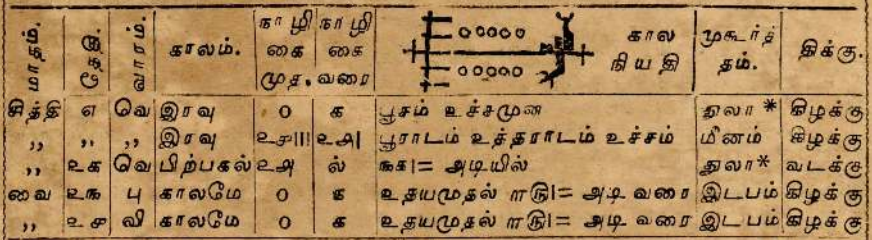 மாதம். தேதி. வாரம். காலம். நாழிகை முத. நாழிகை வரை கால நியதி முகூர்த்தம். திக்கு.
சித்தி எ வெ இரவு 0 க பூசம் உச்சமுன துலா * கிழக்கு
,, ,, ,, இரவு உசு||| உஅ| பூராடம் உத்தராடம் உச்சம் மீனம் கிழக்கு
,, உக வெ பிற்பகல் உஅ ல் ௩க|= அடியில் துலா* வடக்கு
வை உ௩ பு காலமே 0 க உதயமுதல் ௱ரு|= அடி வரை இடபம் கிழக்கு
,, உச வி காலமே 0 க உதயமுதல் ௱ரு|= அடி வரை இடபம் கிழக்கு